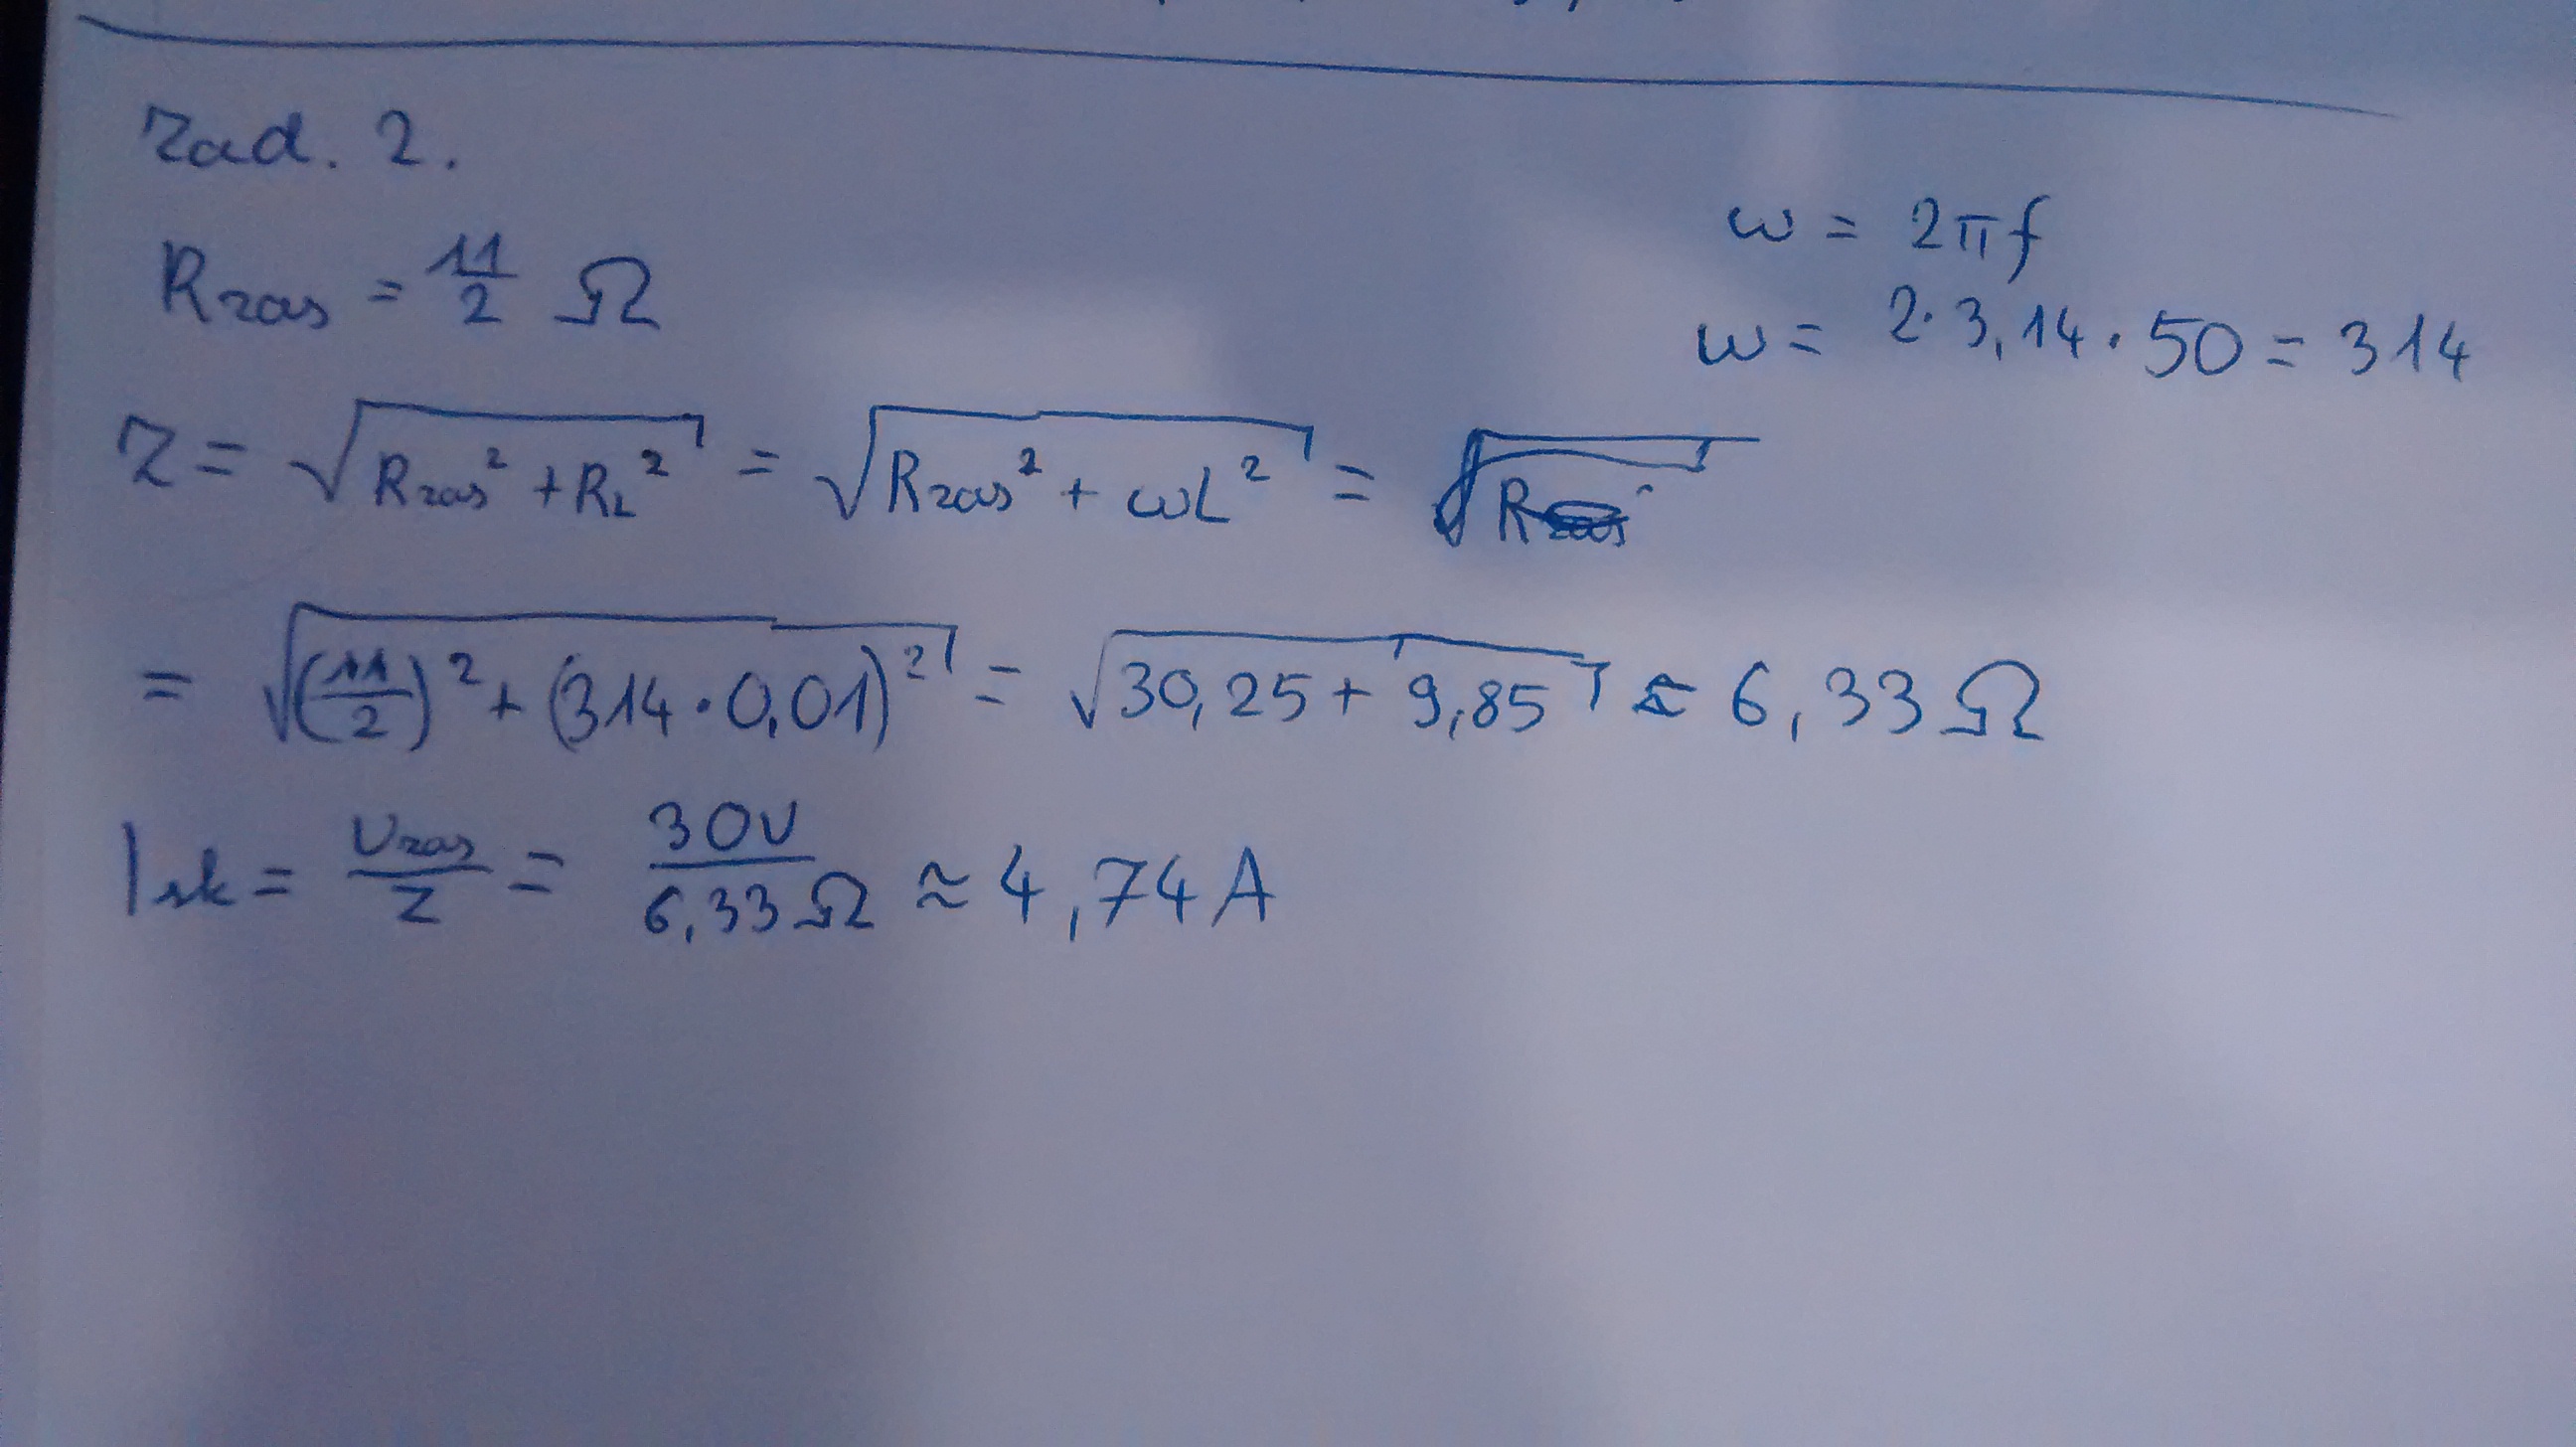 Zad. 2.
Rzas = 11/2 Ω
ω = 2πf
ω = 2·3,14·50 = 314
Z = √(Rzas² + RL²) = √(Rzas² + ωL²) =
= √((11/2)² + (314·0,01)²) = √(30,25 + 9,85) ≈ 6,33 Ω
Isk = Uzas/Z = 30V/6,33Ω ≈ 4,74 A